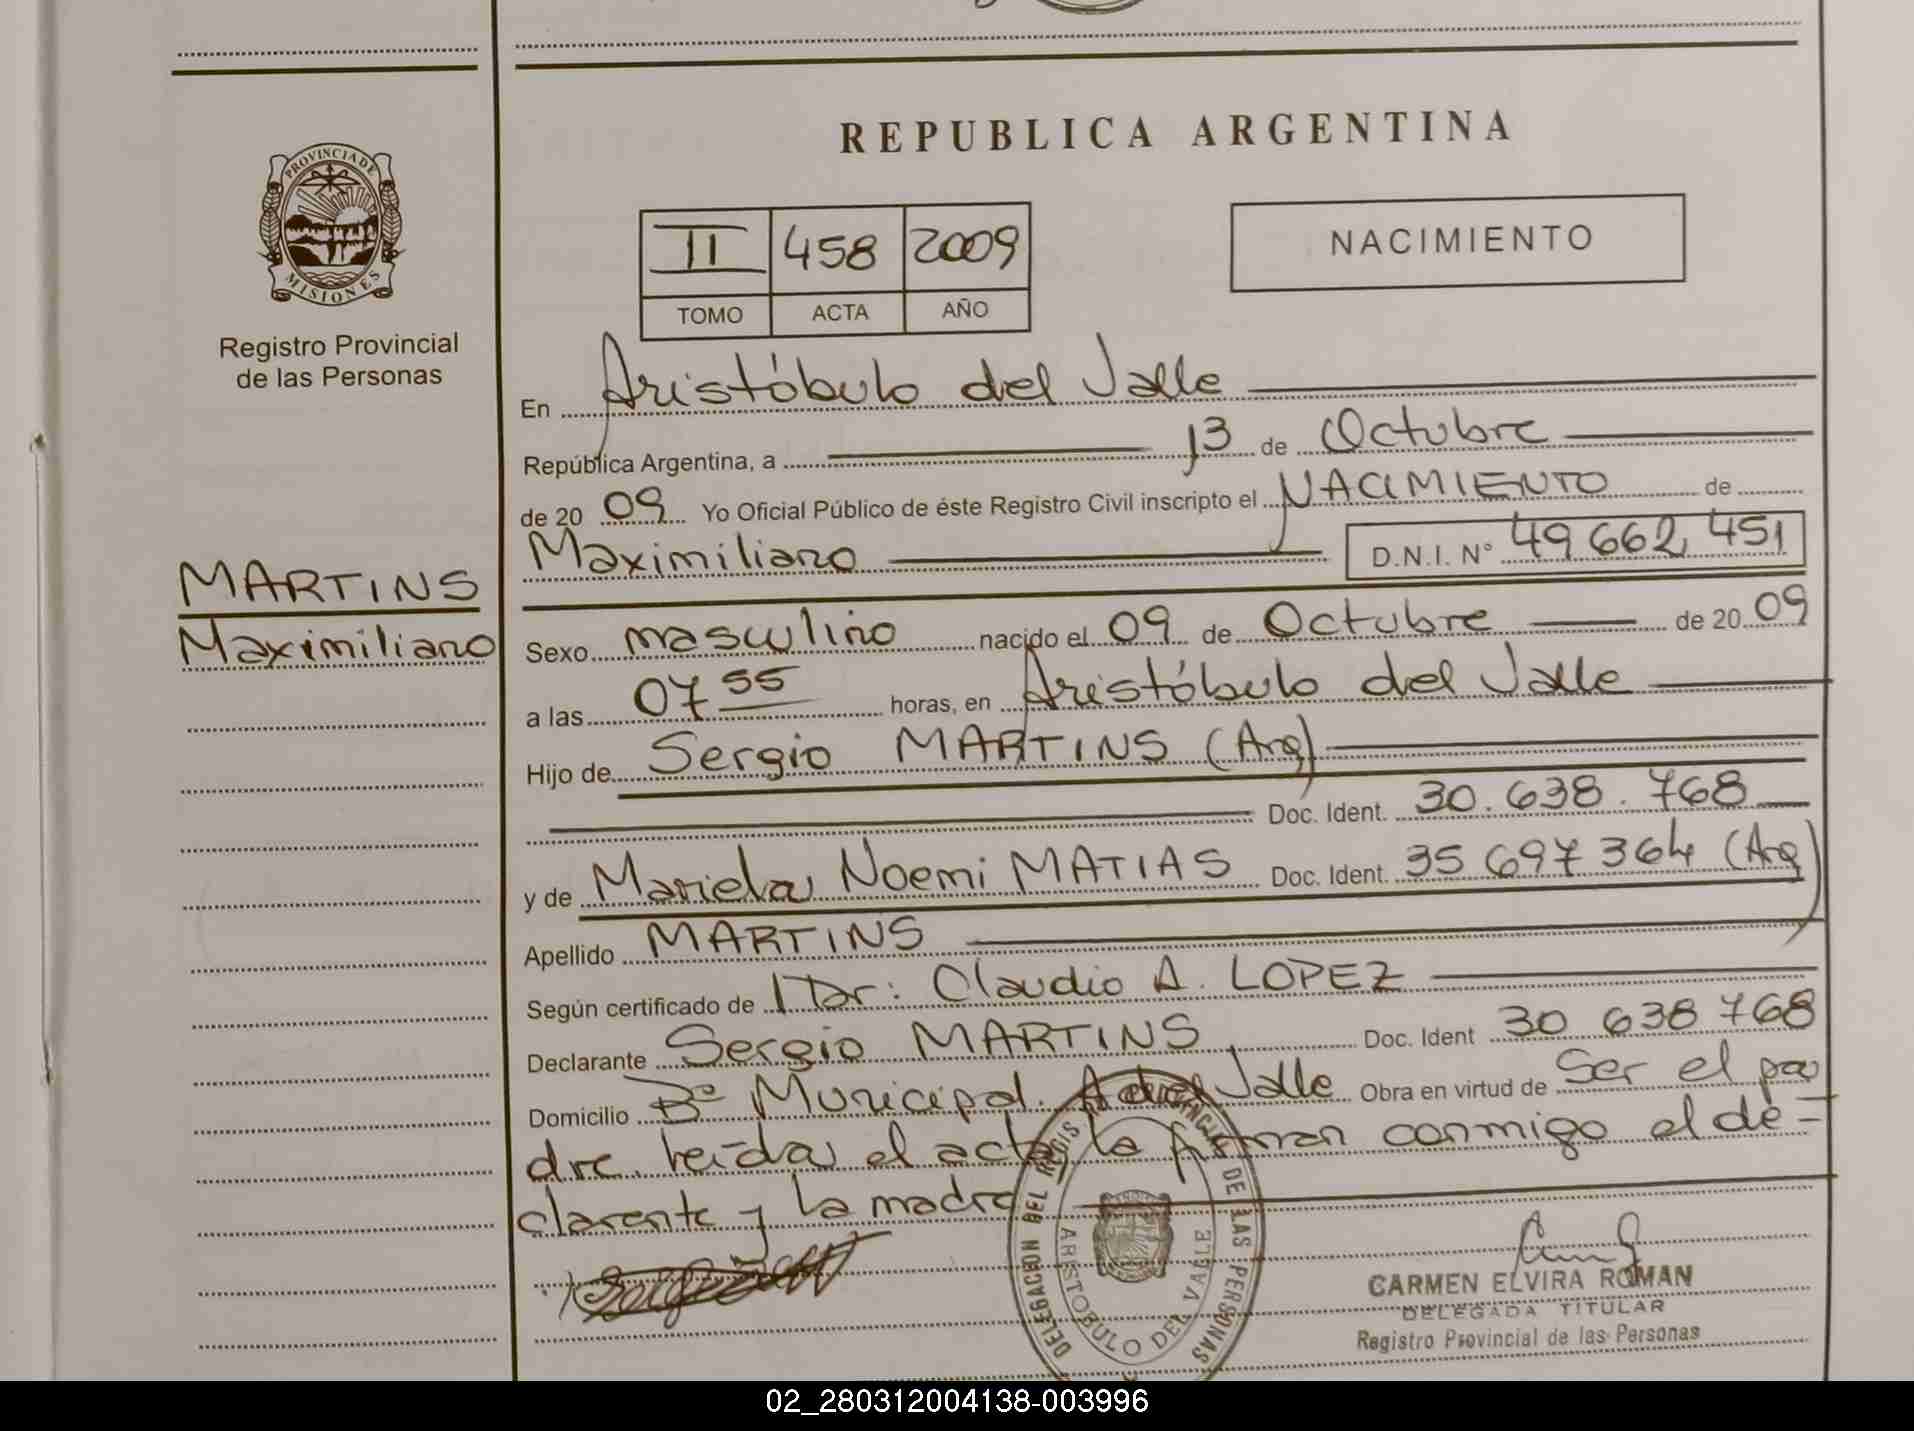 REPUBLICA ARGENTINA
PROVINCIA DE
MISIONES
Registro Provincial
de las Personas
II 458 2009
TOMO ACTA AÑO
NACIMIENTO
En Aristóbulo del Valle
República Argentina, a 13 de Octubre
de 20 09 Yo Oficial Público de éste Registro Civil inscripto el NACIMIENTO de
Maximiliano D.N.I. N° 49 662, 451
MARTINS
Maximiliano
Sexo masculino nacido el 09 de Octubre de 20 09
a las 07 55 horas, en Aristóbulo del Valle
Hijo de Sergio MARTINS (Arg)
Doc. Ident. 30.638.768
y de Mariela Noemi MATIAS Doc. Ident. 35 697 364 (Arg)
Apellido MARTINS
Según certificado de Dr: Claudio A. LOPEZ
Declarante Sergio MARTINS Doc. Ident 30 638 768
Domicilio B° Municipal. A del Valle Obra en virtud de Ser el pa
dre. leida el acta la firman conmigo el de=
clarante y la madre
DELEGACION DEL REGISTRO PROVINCIAL DE LAS PERSONAS
ARISTOBULO DEL VALLE
CARMEN ELVIRA ROMAN
DELEGADA TITULAR
Registro Provincial de las Personas
02_280312004138-003996